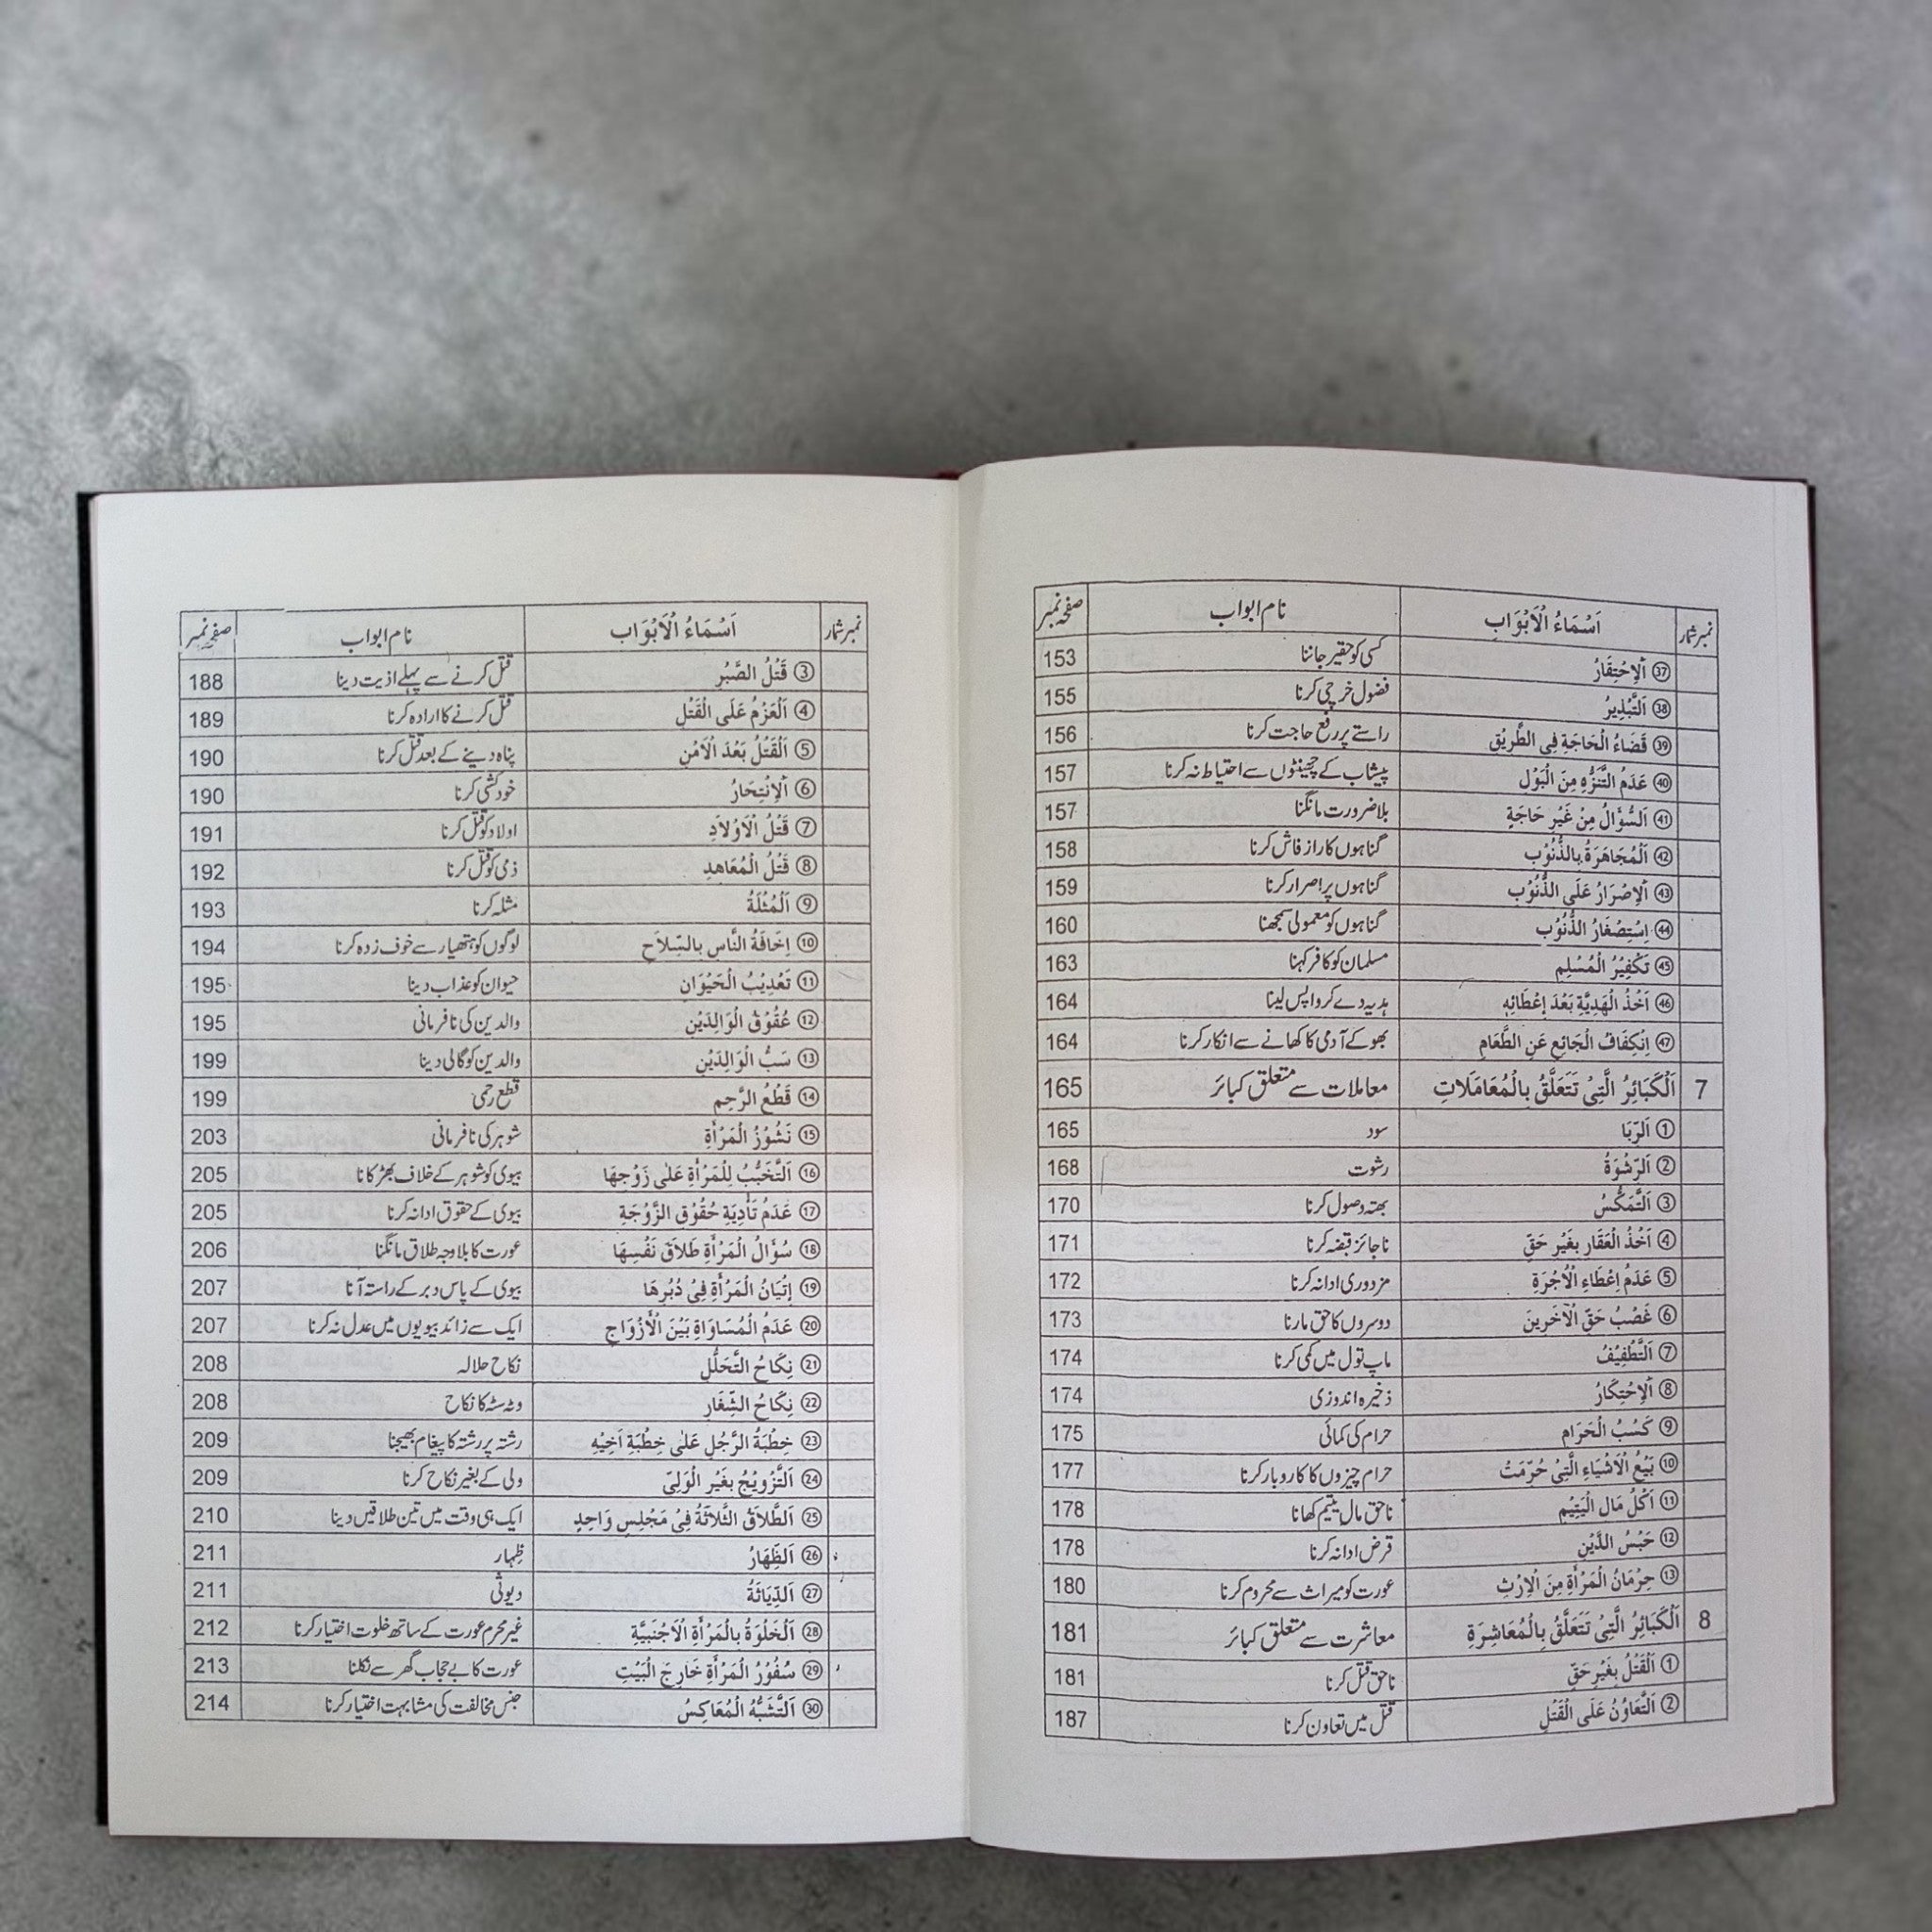 نمبر شمار اَسْمَاءُ الْاَبْوَاب نام ابواب صفحہ نمبر
㊲ اَلْاِحْتِقَارُ کسی کو حقیر جاننا 153
㊳ اَلتَّبْذِيرُ فضول خرچی کرنا 155
㊴ قَضَاءُ الْحَاجَةِ فِی الطَّرِيْقِ راستے پر رفع حاجت کرنا 156
㊵ عَدَمُ التَّنَزُّهِ مِنَ الْبَوْل پیشاب کے چھینٹوں سے احتیاط نہ کرنا 157
㊶ اَلسُّؤَالُ مِنْ غَيْرِ حَاجَةٍ بلا ضرورت مانگنا 157
㊷ اَلْمُجَاهَرَةُ بِالذُّنُوْبِ گناہوں کا راز فاش کرنا 158
㊸ اَلْاِصْرَارُ عَلَی الذُّنُوْبِ گناہوں پر اصرار کرنا 159
㊹ اِسْتِصْغَارُ الذُّنُوْبِ گناہوں کو معمولی سمجھنا 160
㊺ تَكْفِيْرُ الْمُسْلِمِ مسلمان کو کافر کہنا 163
㊻ اَخْذُ الْهَدِيَّةِ بَعْدَ اِعْطَائِهٖ ہدیہ دے کر واپس لینا 164
㊼ اِنْكِفَافُ الْجَائِعِ عَنِ الطَّعَامِ بھوکے آدمی کا کھانے سے انکار کرنا 164
7 اَلْكَبَائِرُ الَّتِیْ تَتَعَلَّقُ بِالْمُعَامَلَاتِ معاملات سے متعلق کبائر 165
① اَلرِّبَا سود 165
② اَلرِّشْوَةُ رشوت 168
③ اَلتَّمَكُّسُ بھتہ وصول کرنا 170
④ اَخْذُ الْعَقَارِ بِغَيْرِ حَقٍّ ناجائز قبضہ کرنا 171
⑤ عَدَمُ اِعْطَاءِ الْاُجْرَةِ مزدوری ادا نہ کرنا 172
⑥ غَصْبُ حَقِّ الْآخَرِينَ دوسروں کا حق مارنا 173
⑦ اَلتَّطْفِيْفُ ماپ تول میں کمی کرنا 174
⑧ اَلْاِحْتِكَارُ ذخیرہ اندوزی 174
⑨ كَسْبُ الْحَرَامِ حرام کی کمائی 175
⑩ بَيْعُ الْاَشْيَاءِ الَّتِیْ حُرِّمَتْ حرام چیزوں کا کاروبار کرنا 177
⑪ اَكْلُ مَالِ الْيَتِيْمِ ناحق مال یتیم کھانا 178
⑫ حَبْسُ الدَّيْنِ قرض ادا نہ کرنا 178
⑬ حِرْمَانُ الْمَرْأَةِ مِنَ الْاِرْثِ عورت کو میراث سے محروم کرنا 180
8 اَلْكَبَائِرُ الَّتِیْ تَتَعَلَّقُ بِالْمُعَاشِرَةِ معاشرت سے متعلق کبائر 181
① اَلْقَتْلُ بِغَيْرِ حَقٍّ ناحق قتل کرنا 181
② اَلتَّعَاوُنُ عَلَی الْقَتْلِ قتل میں تعاون کرنا 187
نمبر شمار اَسْمَاءُ الْاَبْوَاب نام ابواب صفحہ نمبر
③ قَتْلُ الصَّبْرِ قتل کرنے سے پہلے اذیت دینا 188
④ اَلْعَزْمُ عَلَی الْقَتْلِ قتل کرنے کا ارادہ کرنا 189
⑤ اَلْقَتْلُ بَعْدَ الْاَمْنِ پناہ دینے کے بعد قتل کرنا 190
⑥ اَلْاِنْتِحَارُ خودکشی کرنا 190
⑦ قَتْلُ الْاَوْلَادِ اولاد کو قتل کرنا 191
⑧ قَتْلُ الْمُعَاهِدِ ذمی کو قتل کرنا 192
⑨ اَلْمُثْلَةُ مثلہ کرنا 193
⑩ اِخَافَةُ النَّاسِ بِالسِّلَاحِ لوگوں کو ہتھیار سے خوف زدہ کرنا 194
⑪ تَعْذِيْبُ الْحَيْوَانِ حیوان کو عذاب دینا 195
⑫ عُقُوْقُ الْوَالِدَيْنِ والدین کی نافرمانی 195
⑬ سَبُّ الْوَالِدَيْنِ والدین کو گالی دینا 199
⑭ قَطْعُ الرَّحِمِ قطع رحمی 199
⑮ نَشُوْزُ الْمَرْأَةِ شوہر کی نافرمانی 203
⑯ اَلتَّخَبُّبُ لِلْمَرْأَةِ عَلٰی زَوْجِهَا بیوی کو شوہر کے خلاف بھڑکانا 205
⑰ عَدَمُ تَأْدِيَةِ حُقُوْقِ الزَّوْجَةِ بیوی کے حقوق ادا نہ کرنا 205
⑱ سُؤَالُ الْمَرْأَةِ طَلَاقَ نَفْسِهَا عورت کا بلا وجہ طلاق مانگنا 206
⑲ اِتْيَانُ الْمَرْأَةِ فِیْ دُبُرِهَا بیوی کے پاس دبر کے راستہ آنا 207
⑳ عَدَمُ الْمُسَاوَاةِ بَيْنَ الْأَزْوَاجِ ایک سے زائد بیویوں میں عدل نہ کرنا 207
㉑ نِكَاحُ التَّحَلُّلِ نکاح حلالہ 208
㉒ نِكَاحُ الشِّغَارِ وٹہ سٹہ کا نکاح 208
㉓ خِطْبَةُ الرَّجُلِ عَلٰی خِطْبَةِ اَخِيْهِ رشتہ پر رشتہ کا پیغام بھیجنا 209
㉔ اَلتَّزْوِيْجُ بِغَيْرِ الْوَلِیِّ ولی کے بغیر نکاح کرنا 209
㉕ اَلطَّلَاقُ الثَّلَاثَةُ فِیْ مَجْلِسٍ وَاحِدٍ ایک ہی وقت میں تین طلاقیں دینا 210
㉖ اَلظِّهَارُ ظہار 211
㉗ اَلدِّيَاثَةُ دیوثی 211
㉘ اَلْخَلْوَةُ بِالْمَرْأَةِ الْاَجْنَبِيَّةِ غیر محرم عورت کے ساتھ خلوت اختیار کرنا 212
㉙ سُفُوْرُ الْمَرْأَةِ خَارِجَ الْبَيْتِ عورت کا بے حجاب گھر سے نکلنا 213
㉚ اَلتَّشَبُّهُ الْمُعَاكِسُ جنس مخالفت کی مشابہت اختیار کرنا 214